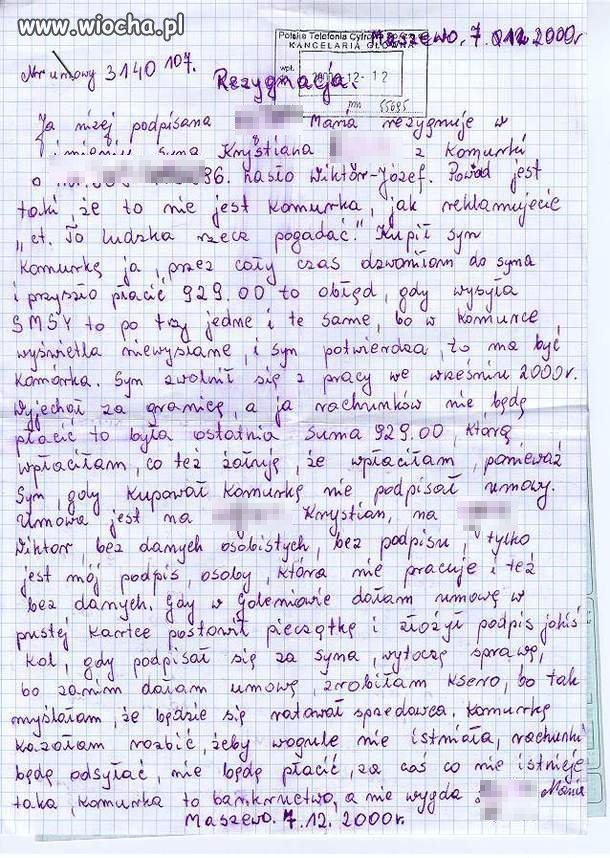 www.wiocha.pl
Polska Telefonia Cyfrowa
KANCELARIA GŁÓWNA
Maszewo. 7.12.2000r
wpł. 2000-12-12
Nr umowy 3140107.
Rezygnacja.
55695
Ja niżej podpisana Maria rezygnuje w
imieniu syna Krystiana z Komurki
o 96. hasło Wiktor-Józef. Powód jest
taki, że to nie jest Komurka, jak reklamujecie
„ct. To ludzka rzecz pogadać." Kupił syn
Komurkę ja, przez cały czas dzwoniłam do syna
i przyszło płacić 929.00 to obłęd, gdy wysyła
SMSY to po trzy jedne i te same, bo w Komurce
wyświetla niewysłane, i syn potwierdza, to ma być
Komórka. Syn zwolnił się z pracy we wrześniu 2000r.
Wyjechał za granicę, a ja rachunków nie będę
płacić to była ostatnia suma 929.00, którą
wpłaciłam, co też żałuję, że wpłaciłam, ponieważ
Syn, gdy kupował Komurkę nie podpisał umowy.
Umowa jest na Krystian, na
Wiktor, bez danych osobistych, bez podpisu, tylko
jest mój podpis, osoby, która nie pracuje i też
bez danych. Gdy w Goleniowie dałam umowę w
pustej Kartce postawił pieczątkę i złożył podpis jakiś
Kol, gdy podpisał się za syna, wytoczę sprawę,
bo zanim dałam umowę, zrobiłam ksero, bo tak
myślałam, że będzie się ratował sprzedawca. Komurkę
Kazałam rozbić, żeby wogule nie istniała, rachunki
będę odsyłać, nie będę płacić, za coś co nie istnieje
taka, Komurka to bankructwo, a nie wygda Maria
Maszewo. 7.12.2000r.